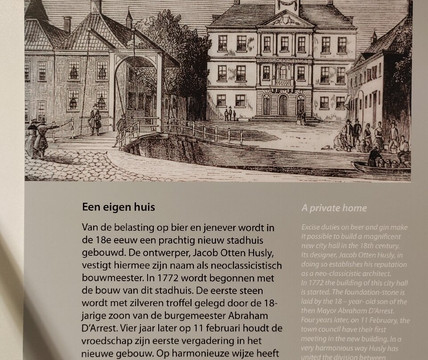 Een eigen huis
Van de belasting op bier en jenever wordt in
de 18e eeuw een prachtig nieuw stadhuis
gebouwd. De ontwerper, Jacob Otten Husly,
vestigt hiermee zijn naam als neoclassicistisch
bouwmeester. In 1772 wordt begonnen met
de bouw van dit stadhuis. De eerste steen
wordt met zilveren troffel gelegd door de 18-
jarige zoon van de burgemeester Abraham
D'Arrest. Vier jaar later op 11 februari houdt de
vroedschap zijn eerste vergadering in het
nieuwe gebouw. Op harmonieuze wijze heeft
A private home
Excise duties on beer and gin make
it possible to build a magnificent
new city hall in the 18th century.
Its designer, Jacob Otten Husly, in
doing so establishes his reputation
as a neo-classicistic architect.
In 1772 the building of this city hall
is started. The foundation-stone is
laid by the 18 - year-old son of the
then Mayor Abraham D'Arrest.
Four years later, on 11 February, the
town council have their first
meeting in the new building. In a
very harmonious way Husly has
united the division between